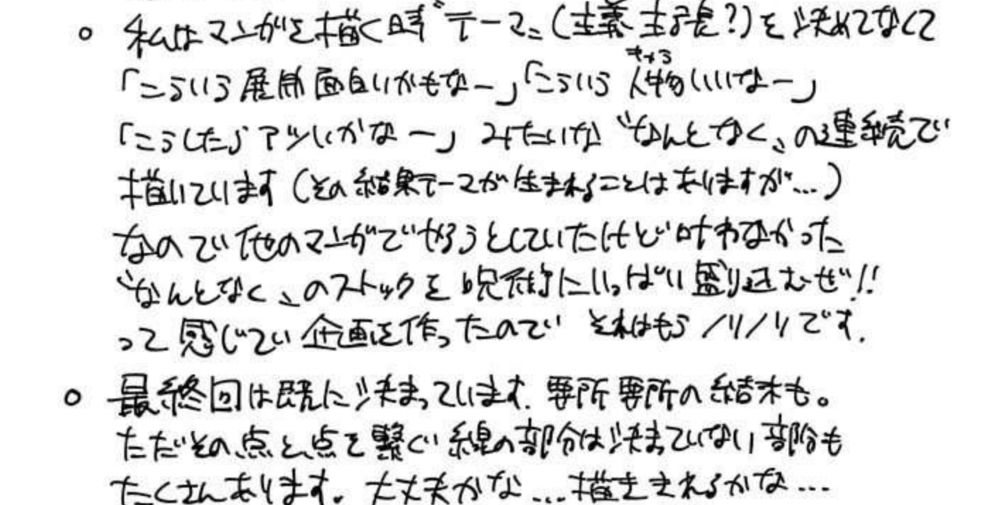 ○ 私はマンガを描く時“テーマ„(主義主張?)を決めてなくて
「こういう展開面白いかもなー」「こういう人物いいなー」
キャラ
「こうしたらアツいかなー」みたいな“なんとなく„の連続で
描いています(その結果テーマが生まれることはありますが…)
なので他のマンガでやろうとしていたけど叶わなかった
“なんとなく„のストックを呪術にいっぱい盛り込むぜ!!
って感じで企画を作ったので それはもうノリノリです.
○ 最終回は既に決まっています.要所要所の結末も。
ただその、点と、点を繋ぐ線の部分は決まていない部分も
たくさんあります。大丈夫かな…描ききれるかな…